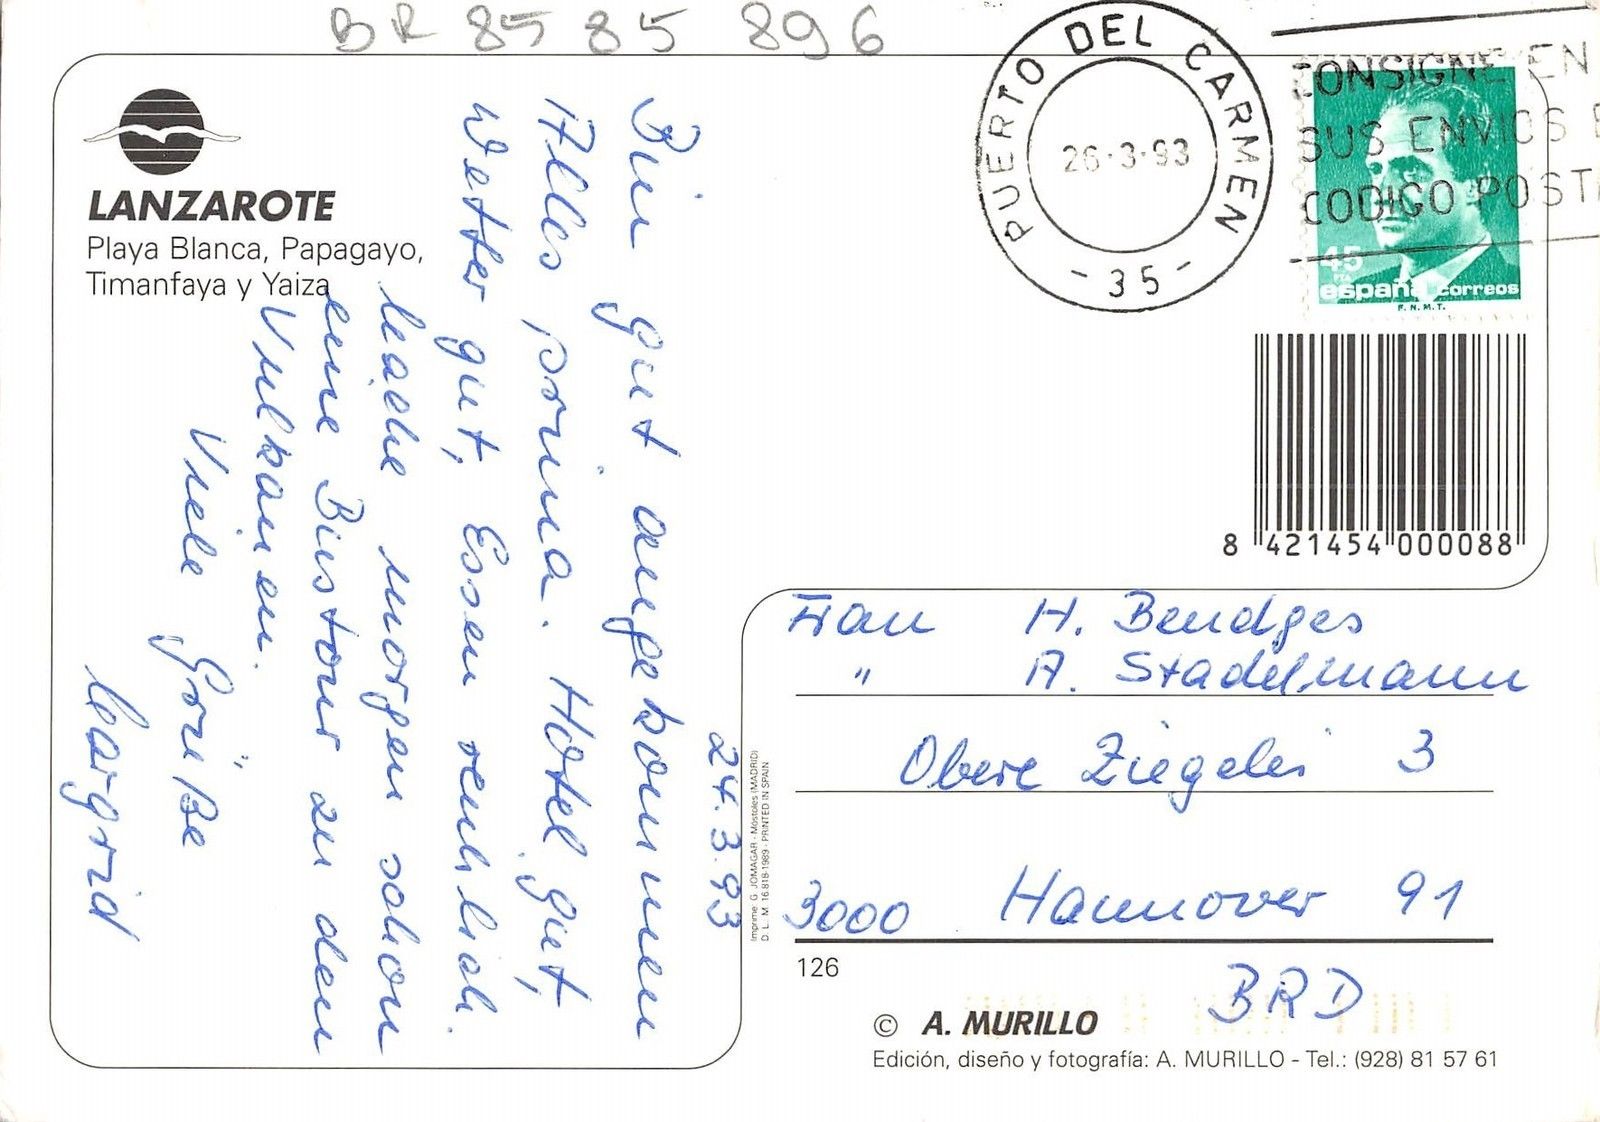 BR 85 85 896
LANZAROTE
Playa Blanca, Papagayo,
Timanfaya y Yaiza
24.3.93
Bin gut angekommen
Alles prima. Hotel gut,
Wetter gut, Essen reichlich.
Mache morgen schon
eine Bustour zu den
Vulkanen.
Viele Grüße
Margrid
PUERTO DEL CARMEN
26-3-93
- 35 -
CONSIGNE EN
SUS ENVIOS E
CODIGO POSTA
45
PTA
españa correos
F.N.M.T.
8 421454 000088
Frau H. Bendges
" A. Stadelmann
Obere Ziegelei 3
3000 Hannover 91
BRD
Imprime: G. JOMAGAR - Móstoles (MADRID)
D. L. M. 16.818-1989 - PRINTED IN SPAIN
126
© A. MURILLO
Edición, diseño y fotografía: A. MURILLO - Tel.: (928) 81 57 61